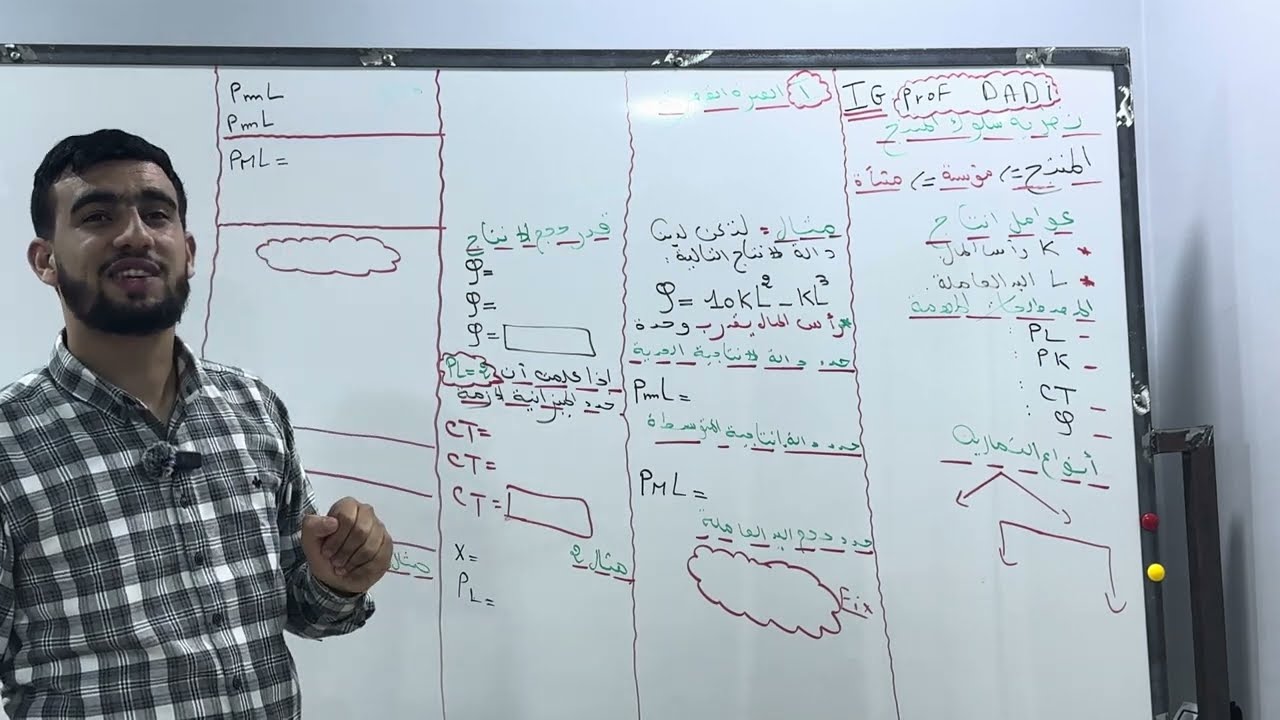 IG Prof DADI
نظرية سلوك المنتج
المنتج => مؤسسة => منشأة
عوامل انتاج
* K رأس المال
* L اليد العاملة
المهمة
- PL :
- PK :
- CT :
- φ :
أنواع التمارين
1 الفترة
مثال = لتكن لدينا
دالة الإنتاج التالية :
φ = 10KL² - KL³
* رأس المال يقدر ب وحدة
حدد دالة الإنتاجية الحدية
PmL =
حدد دالة إنتاجية المتوسطة
PML =
حدد حجم اليد العاملة
Fix
قدر حجم الإنتاج
φ=
φ=
φ=
إذا علمت أن PL=2
حدد الميزانية لازمة
CT=
CT=
CT=
مثال 2
X=
PL=
PmL
PmL
PML =
مثال